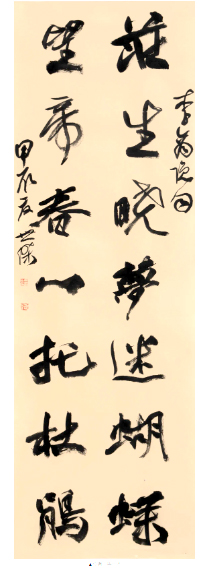 莊生曉夢迷蝴蝶
望帝春心托杜鵑
李商隱句
甲辰夏世傑